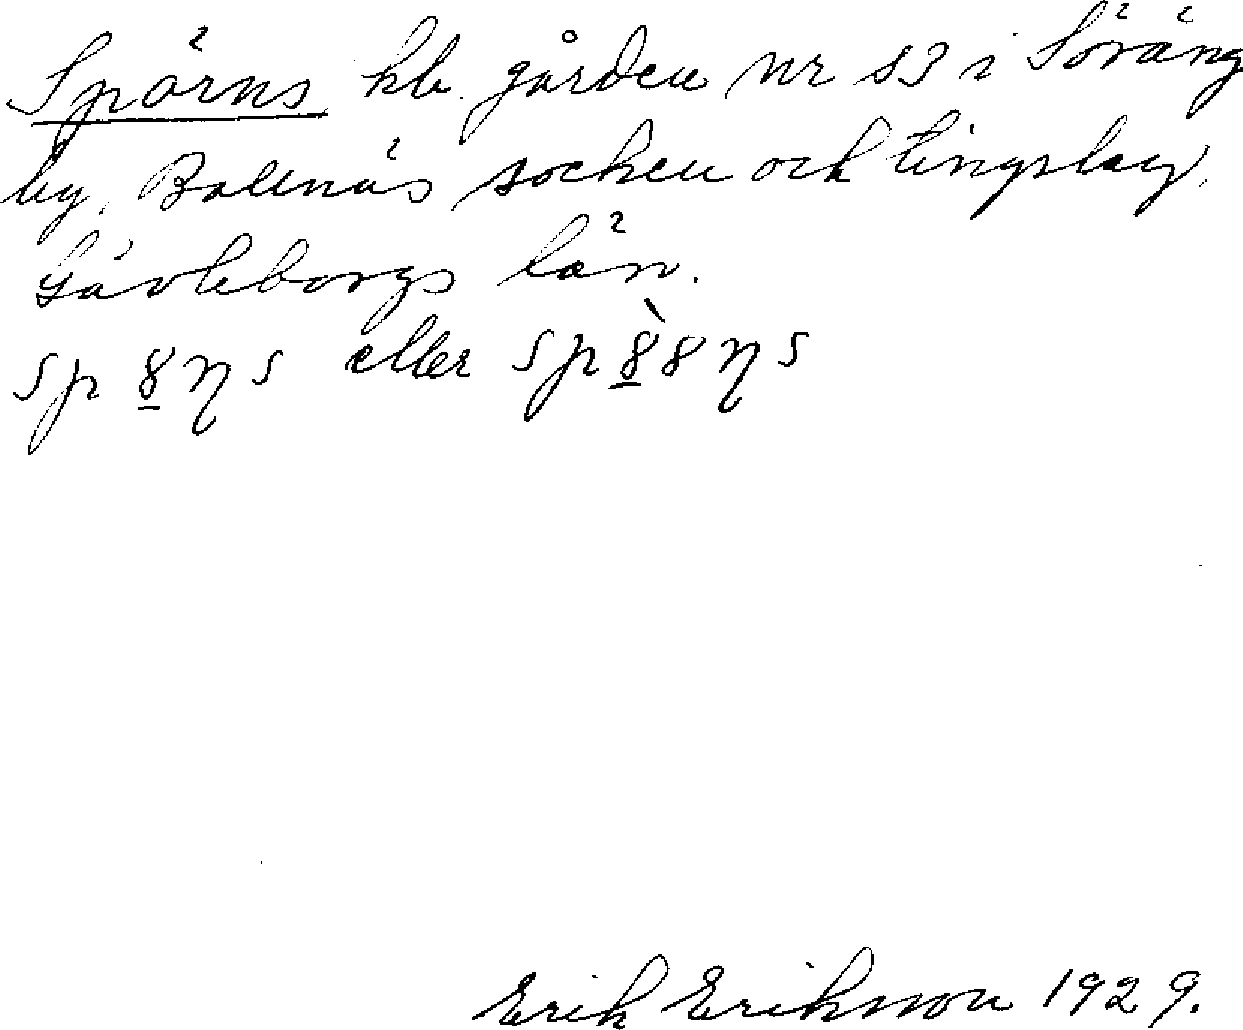 Spörns kb. gården nr 83 i Söräng
by, Bollnäs socken och tingslag,
Gävleborgs län.
sp 8̲ η s eller sp 8̲̀ 8 η s
Erik Eriksson 1929.